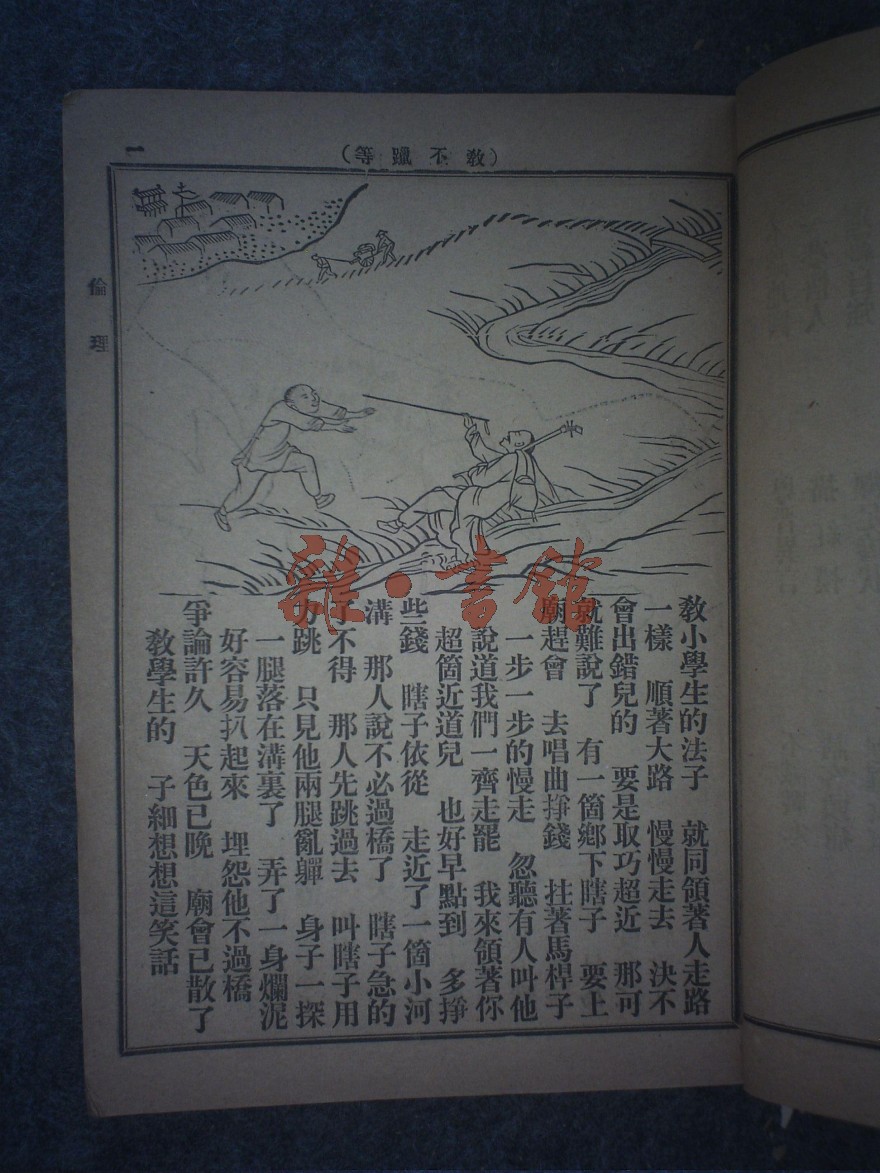 （教不躐等）
一
倫理
教小學生的法子　就同領著人走路
一樣　順著大路　慢慢走去　決不
會出錯兒的　要是取巧超近　那可
就難說了　有一箇鄉下瞎子　要上
廟趕會　去唱曲掙錢　拄著馬桿子
一步一步的慢走　忽聽有人叫他
說道我們一齊走罷　我來領著你
超箇近道兒　也好早點到　多掙
些錢　瞎子依從　走近了一箇小河
溝　那人說不必過橋了　瞎子急的
了不得　那人先跳過去　叫瞎子用
力跳　只見他兩腿亂軃　身子一探
一腿落在溝裏了　弄了一身爛泥
好容易扒起來　埋怨他不過橋
爭論許久　天色已晚　廟會已散了
教學生的　子細想想這笑話
雜·書館